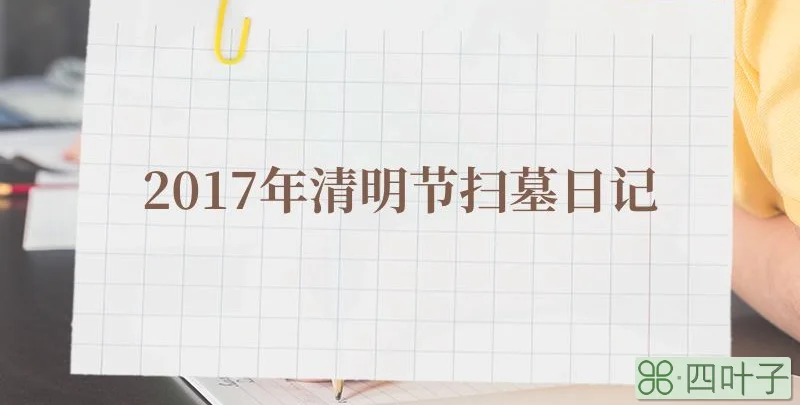 2017年清明节扫墓日记
四叶子